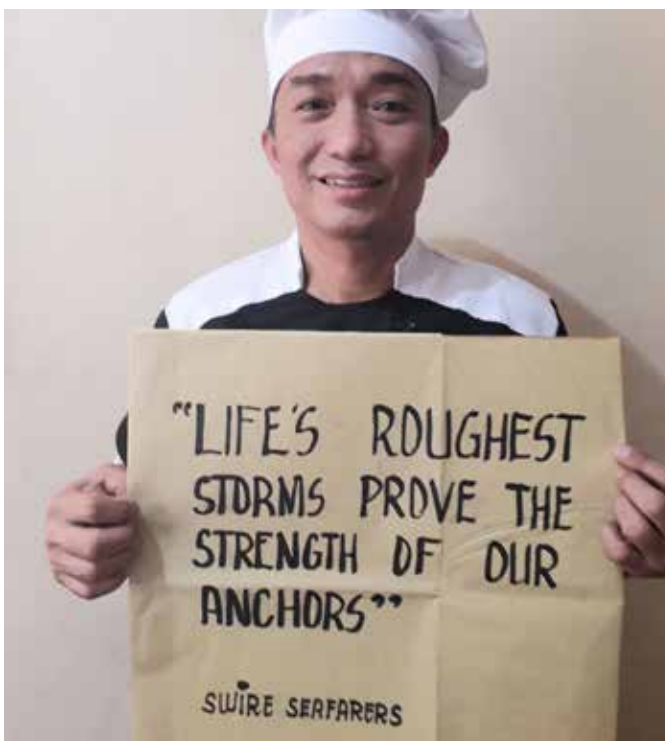 "LIFE'S ROUGHEST
STORMS PROVE THE
STRENGTH OF OUR
ANCHORS"
SWIRE SEAFARERS